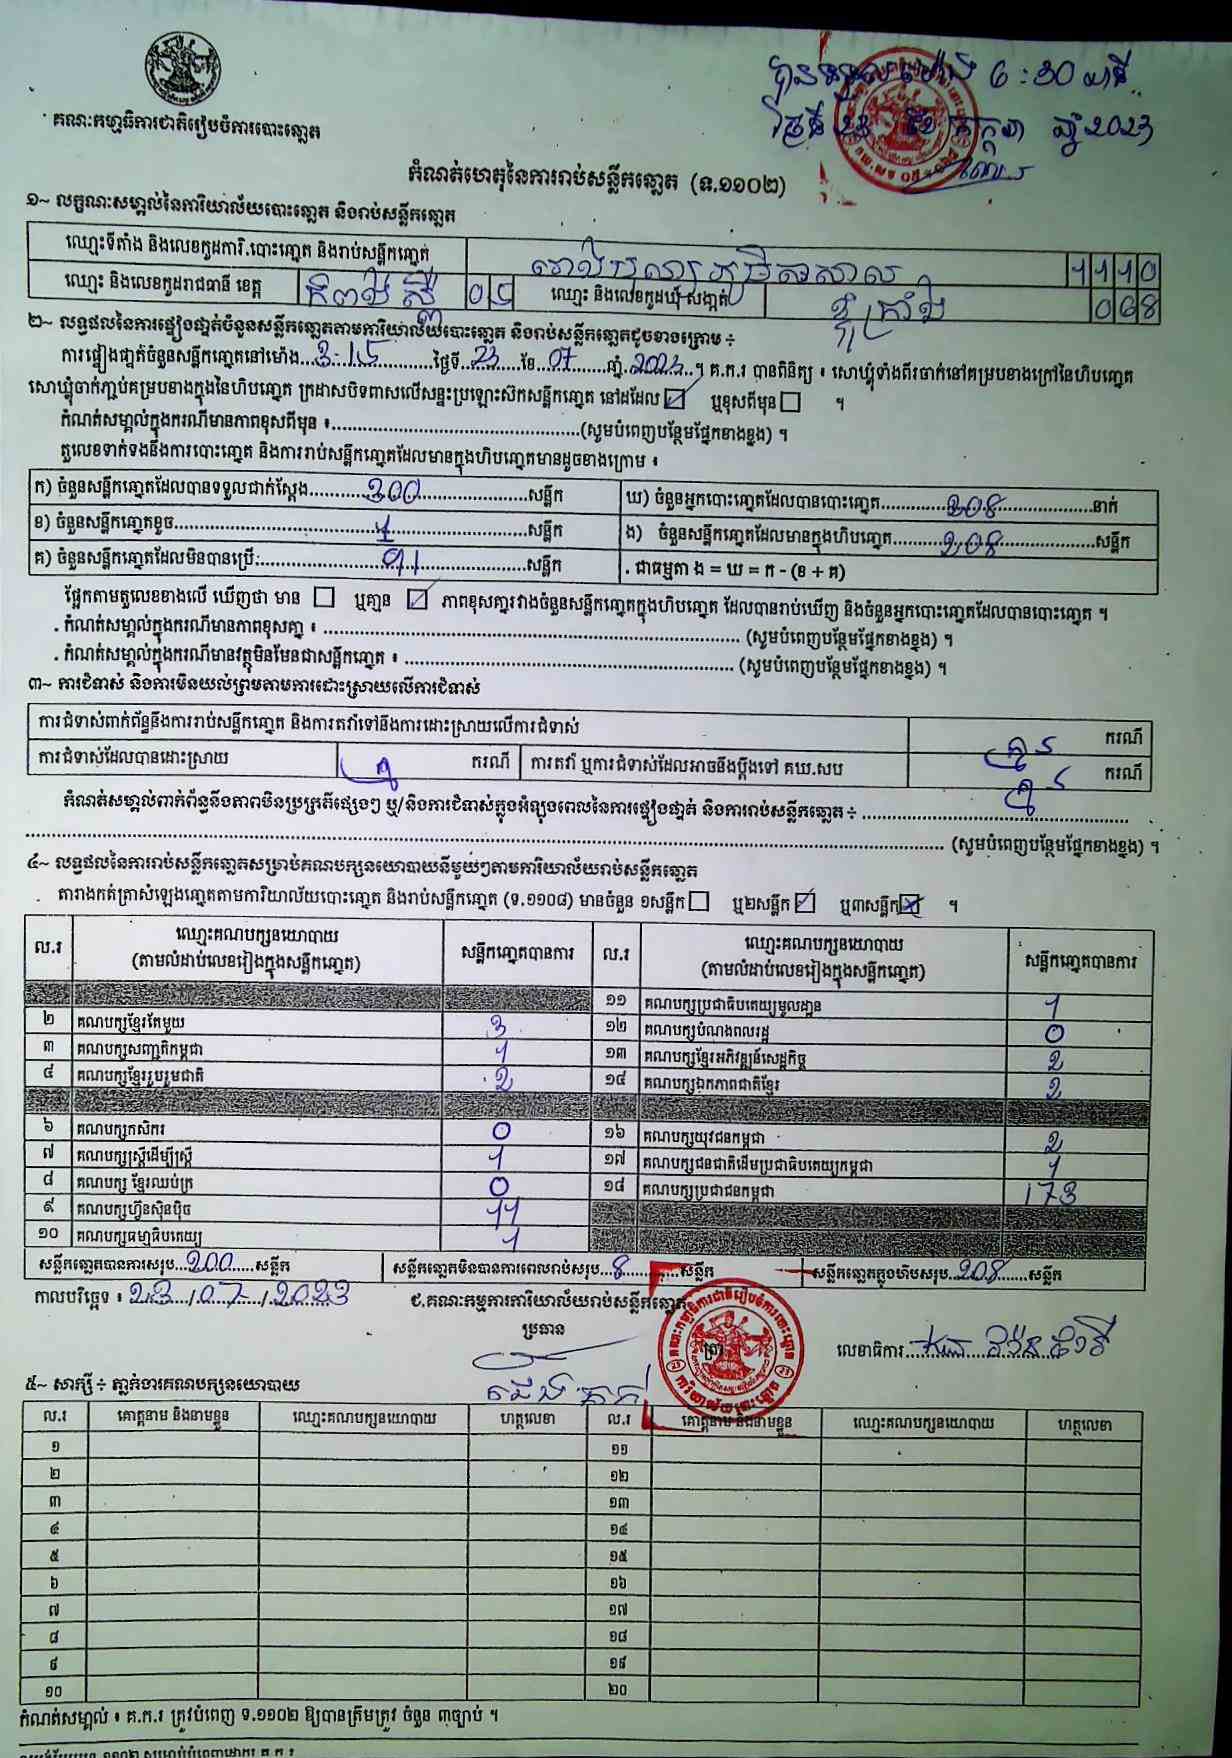 បានទទួលម៉ោង 6:30 នាទី
ថ្ងៃទី 23 ខែ កក្កដា ឆ្នាំ 2023
គណៈកម្មាធិការជាតិរៀបចំការបោះឆ្នោត
កំណត់ហេតុនៃការរាប់សន្លឹកឆ្នោត (ទ.១១០២)
១~ លក្ខណៈសម្គាល់នៃការិយាល័យបោះឆ្នោត និងរាប់សន្លឹកឆ្នោត
ឈ្មោះទីតាំង និងលេខកូដការិ.បោះឆ្នោត និងរាប់សន្លឹកឆ្នោត 1110
ឈ្មោះ និងលេខកូដរាជធានី ខេត្ត កំពង់ស្ពឺ 05 ឈ្មោះ និងលេខកូដឃុំ-សង្កាត់ ឃុំ 068
២~ លទ្ធផលនៃការផ្ទៀងផ្ទាត់ចំនួនសន្លឹកឆ្នោតតាមការិយាល័យបោះឆ្នោត និងរាប់សន្លឹកឆ្នោតដូចខាងក្រោម ÷
ការផ្ទៀងផ្ទាត់ចំនួនសន្លឹកឆ្នោតនៅម៉ោង 3:15 ថ្ងៃទី 23 ខែ 07 ឆ្នាំ 2023 ។ គ.ក.រ បានពិនិត្យ ៖ សោឃ្មុំទាំងពីរចាក់នៅគម្របខាងក្រៅនៃហិបឆ្នោត
សោឃ្មុំចាក់ភ្ជាប់គម្របខាងក្នុងនៃហិបឆ្នោត ក្រដាសបិទពាសលើសន្ទះប្រឡោះស៊កសន្លឹកឆ្នោត នៅដដែល ☑ ឬខុសពីមុន ☐ ។
កំណត់សម្គាល់ក្នុងករណីមានភាពខុសពីមុន ៖ (សូមបំពេញបន្ថែមផ្នែកខាងខ្នង) ។
តួលេខទាក់ទងនឹងការបោះឆ្នោត និងការរាប់សន្លឹកឆ្នោតដែលមានក្នុងហិបឆ្នោតមានដូចខាងក្រោម ៖
ក) ចំនួនសន្លឹកឆ្នោតដែលបានទទួលជាក់ស្តែង 300 សន្លឹក ឃ) ចំនួនអ្នកបោះឆ្នោតដែលបានបោះឆ្នោត 208 នាក់
ខ) ចំនួនសន្លឹកឆ្នោតខូច 1 សន្លឹក ង) ចំនួនសន្លឹកឆ្នោតដែលមានក្នុងហិបឆ្នោត 208 សន្លឹក
គ) ចំនួនសន្លឹកឆ្នោតដែលមិនបានប្រើ: 91 សន្លឹក . ជាធម្មតា ង = ឃ = ក - (ខ + គ)
ផ្អែកតាមតួលេខខាងលើ ឃើញថា មាន ☐ ឬគ្មាន ☑ ភាពខុសគ្នារវាងចំនួនសន្លឹកឆ្នោតក្នុងហិបឆ្នោត ដែលបានរាប់ឃើញ និងចំនួនអ្នកបោះឆ្នោតដែលបានបោះឆ្នោត ។
. កំណត់សម្គាល់ក្នុងករណីមានភាពខុសគ្នា ៖ (សូមបំពេញបន្ថែមផ្នែកខាងខ្នង) ។
. កំណត់សម្គាល់ក្នុងករណីមានវត្ថុមិនមែនជាសន្លឹកឆ្នោត ៖ (សូមបំពេញបន្ថែមផ្នែកខាងខ្នង) ។
៣~ ការជំទាស់ និងការមិនយល់ព្រមតាមការដោះស្រាយលើការជំទាស់
ការជំទាស់ពាក់ព័ន្ធនឹងការរាប់សន្លឹកឆ្នោត និងការតវ៉ាទៅនឹងការដោះស្រាយលើការជំទាស់ គ្មាន ករណី
ការជំទាស់ដែលបានដោះស្រាយ ករណី ការតវ៉ា ឬការជំទាស់ដែលអាចនឹងប្តឹងទៅ គឃ.សប គ្មាន ករណី
កំណត់សម្គាល់ពាក់ព័ន្ធនឹងភាពមិនប្រក្រតីផ្សេងៗ ឬ/និងការជំទាស់ក្នុងអំឡុងពេលនៃការផ្ទៀងផ្ទាត់ និងការរាប់សន្លឹកឆ្នោត ÷
(សូមបំពេញបន្ថែមផ្នែកខាងខ្នង) ។
៤~ លទ្ធផលនៃការរាប់សន្លឹកឆ្នោតសម្រាប់គណបក្សនយោបាយនីមួយៗតាមការិយាល័យរាប់សន្លឹកឆ្នោត
តារាងកត់ត្រាសំឡេងឆ្នោតតាមការិយាល័យបោះឆ្នោត និងរាប់សន្លឹកឆ្នោត (ទ.១១០៨) មានចំនួន ១សន្លឹក ☐ ឬ២សន្លឹក ☑ ឬ៣សន្លឹក ☒ ។
ល.រ ឈ្មោះគណបក្សនយោបាយ (តាមលំដាប់លេខរៀងក្នុងសន្លឹកឆ្នោត) សន្លឹកឆ្នោតបានការ ល.រ ឈ្មោះគណបក្សនយោបាយ (តាមលំដាប់លេខរៀងក្នុងសន្លឹកឆ្នោត) សន្លឹកឆ្នោតបានការ
១១ គណបក្សប្រជាធិបតេយ្យមូលដ្ឋាន 1
២ គណបក្សខ្មែរតែមួយ 3 ១២ គណបក្សបំណងពលរដ្ឋ 0
៣ គណបក្សសញ្ជាតិកម្ពុជា 1 ១៣ គណបក្សខ្មែរអភិវឌ្ឍន៍សេដ្ឋកិច្ច 2
៤ គណបក្សខ្មែររួបរួមជាតិ 2 ១៤ គណបក្សឯកភាពជាតិខ្មែរ 2
៦ គណបក្សកសិករ 0 ១៦ គណបក្សយុវជនកម្ពុជា 2
៧ គណបក្សស្ត្រីដើម្បីស្ត្រី 1 ១៧ គណបក្សជនជាតិដើមប្រជាធិបតេយ្យកម្ពុជា 1
៨ គណបក្ស ខ្មែរឈប់ក្រ 0 ១៨ គណបក្សប្រជាជនកម្ពុជា 173
៩ គណបក្សហ៊្វុនស៊ិនប៉ិច 11
១០ គណបក្សធម្មាធិបតេយ្យ 1
សន្លឹកឆ្នោតបានការសរុប 200 សន្លឹក សន្លឹកឆ្នោតមិនបានការពេលរាប់សរុប 8 សន្លឹក សន្លឹកឆ្នោតក្នុងហិបសរុប 208 សន្លឹក
កាលបរិច្ឆេទ ៖ 23/07/2023 ជ.គណៈកម្មការការិយាល័យរាប់សន្លឹកឆ្នោត
ប្រធាន
លេខាធិការ
៥~ សាក្សី ÷ ភ្នាក់ងារគណបក្សនយោបាយ
ល.រ គោត្តនាម និងនាមខ្លួន ឈ្មោះគណបក្សនយោបាយ ហត្ថលេខា ល.រ គោត្តនាម និងនាមខ្លួន ឈ្មោះគណបក្សនយោបាយ ហត្ថលេខា
១ ១១
២ ១២
៣ ១៣
៤ ១៤
៥ ១៥
៦ ១៦
៧ ១៧
៨ ១៨
៩ ១៩
១០ ២០
កំណត់សម្គាល់ ៖ គ.ក.រ ត្រូវបំពេញ ទ.១១០២ ឱ្យបានត្រឹមត្រូវ ចំនួន ៣ច្បាប់ ។